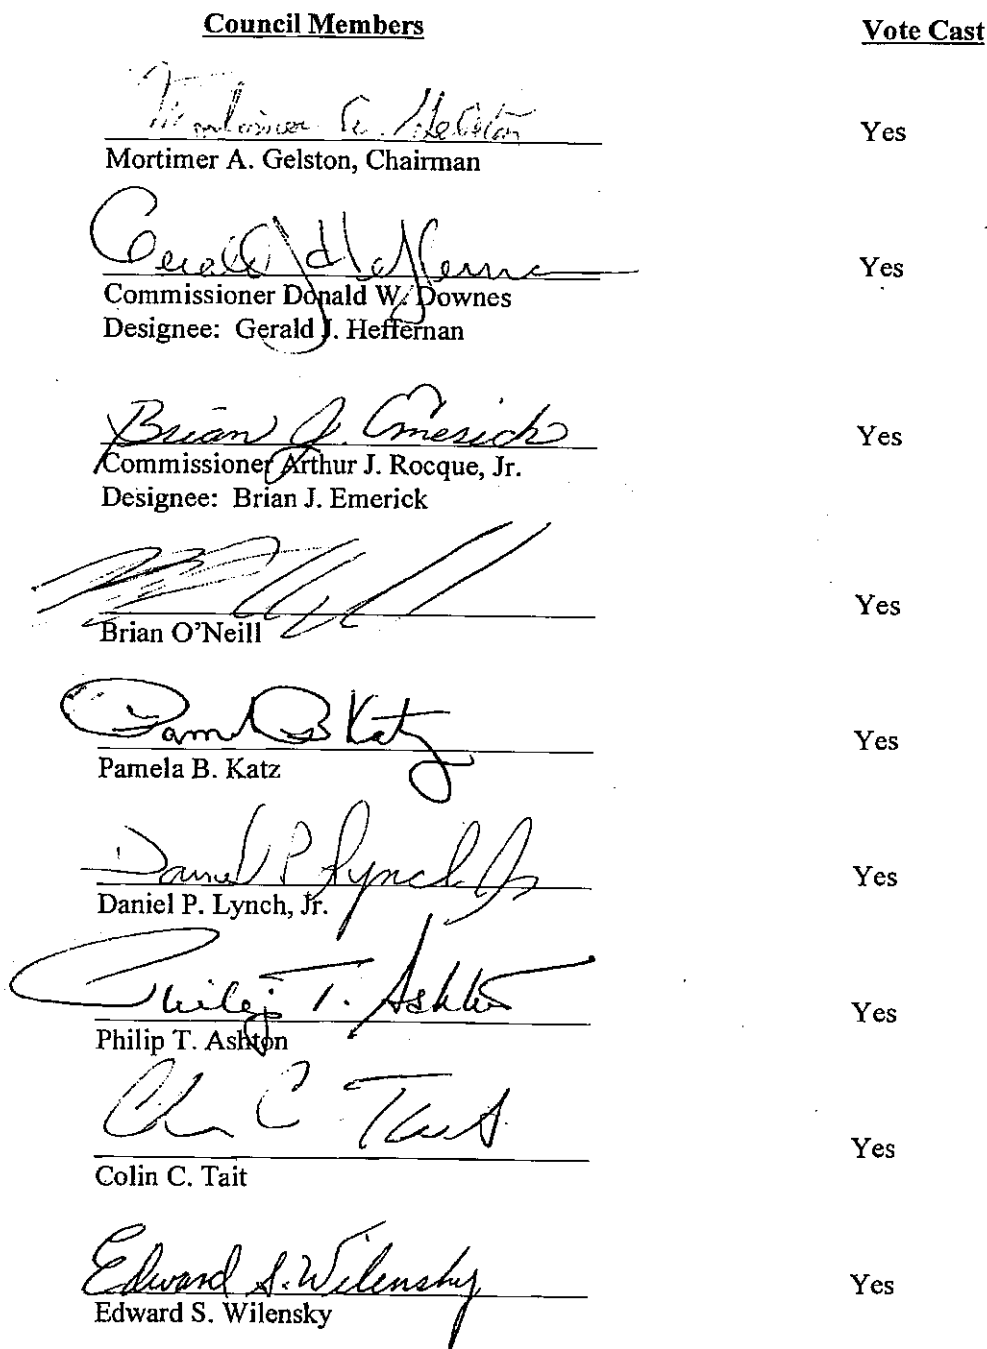 Council Members Vote Cast
Mortimer A. Gelston
Mortimer A. Gelston, Chairman Yes
Gerald J. Heffernan
Commissioner Donald W. Downes Yes
Designee: Gerald J. Heffernan
Brian J. Emerick
Commissioner Arthur J. Rocque, Jr. Yes
Designee: Brian J. Emerick
Brian O'Neill Yes
Pamela B Katz
Pamela B. Katz Yes
Daniel P Lynch Jr
Daniel P. Lynch, Jr. Yes
Philip T. Ashton
Philip T. Ashton Yes
Colin C Tait
Colin C. Tait Yes
Edward S. Wilensky
Edward S. Wilensky Yes